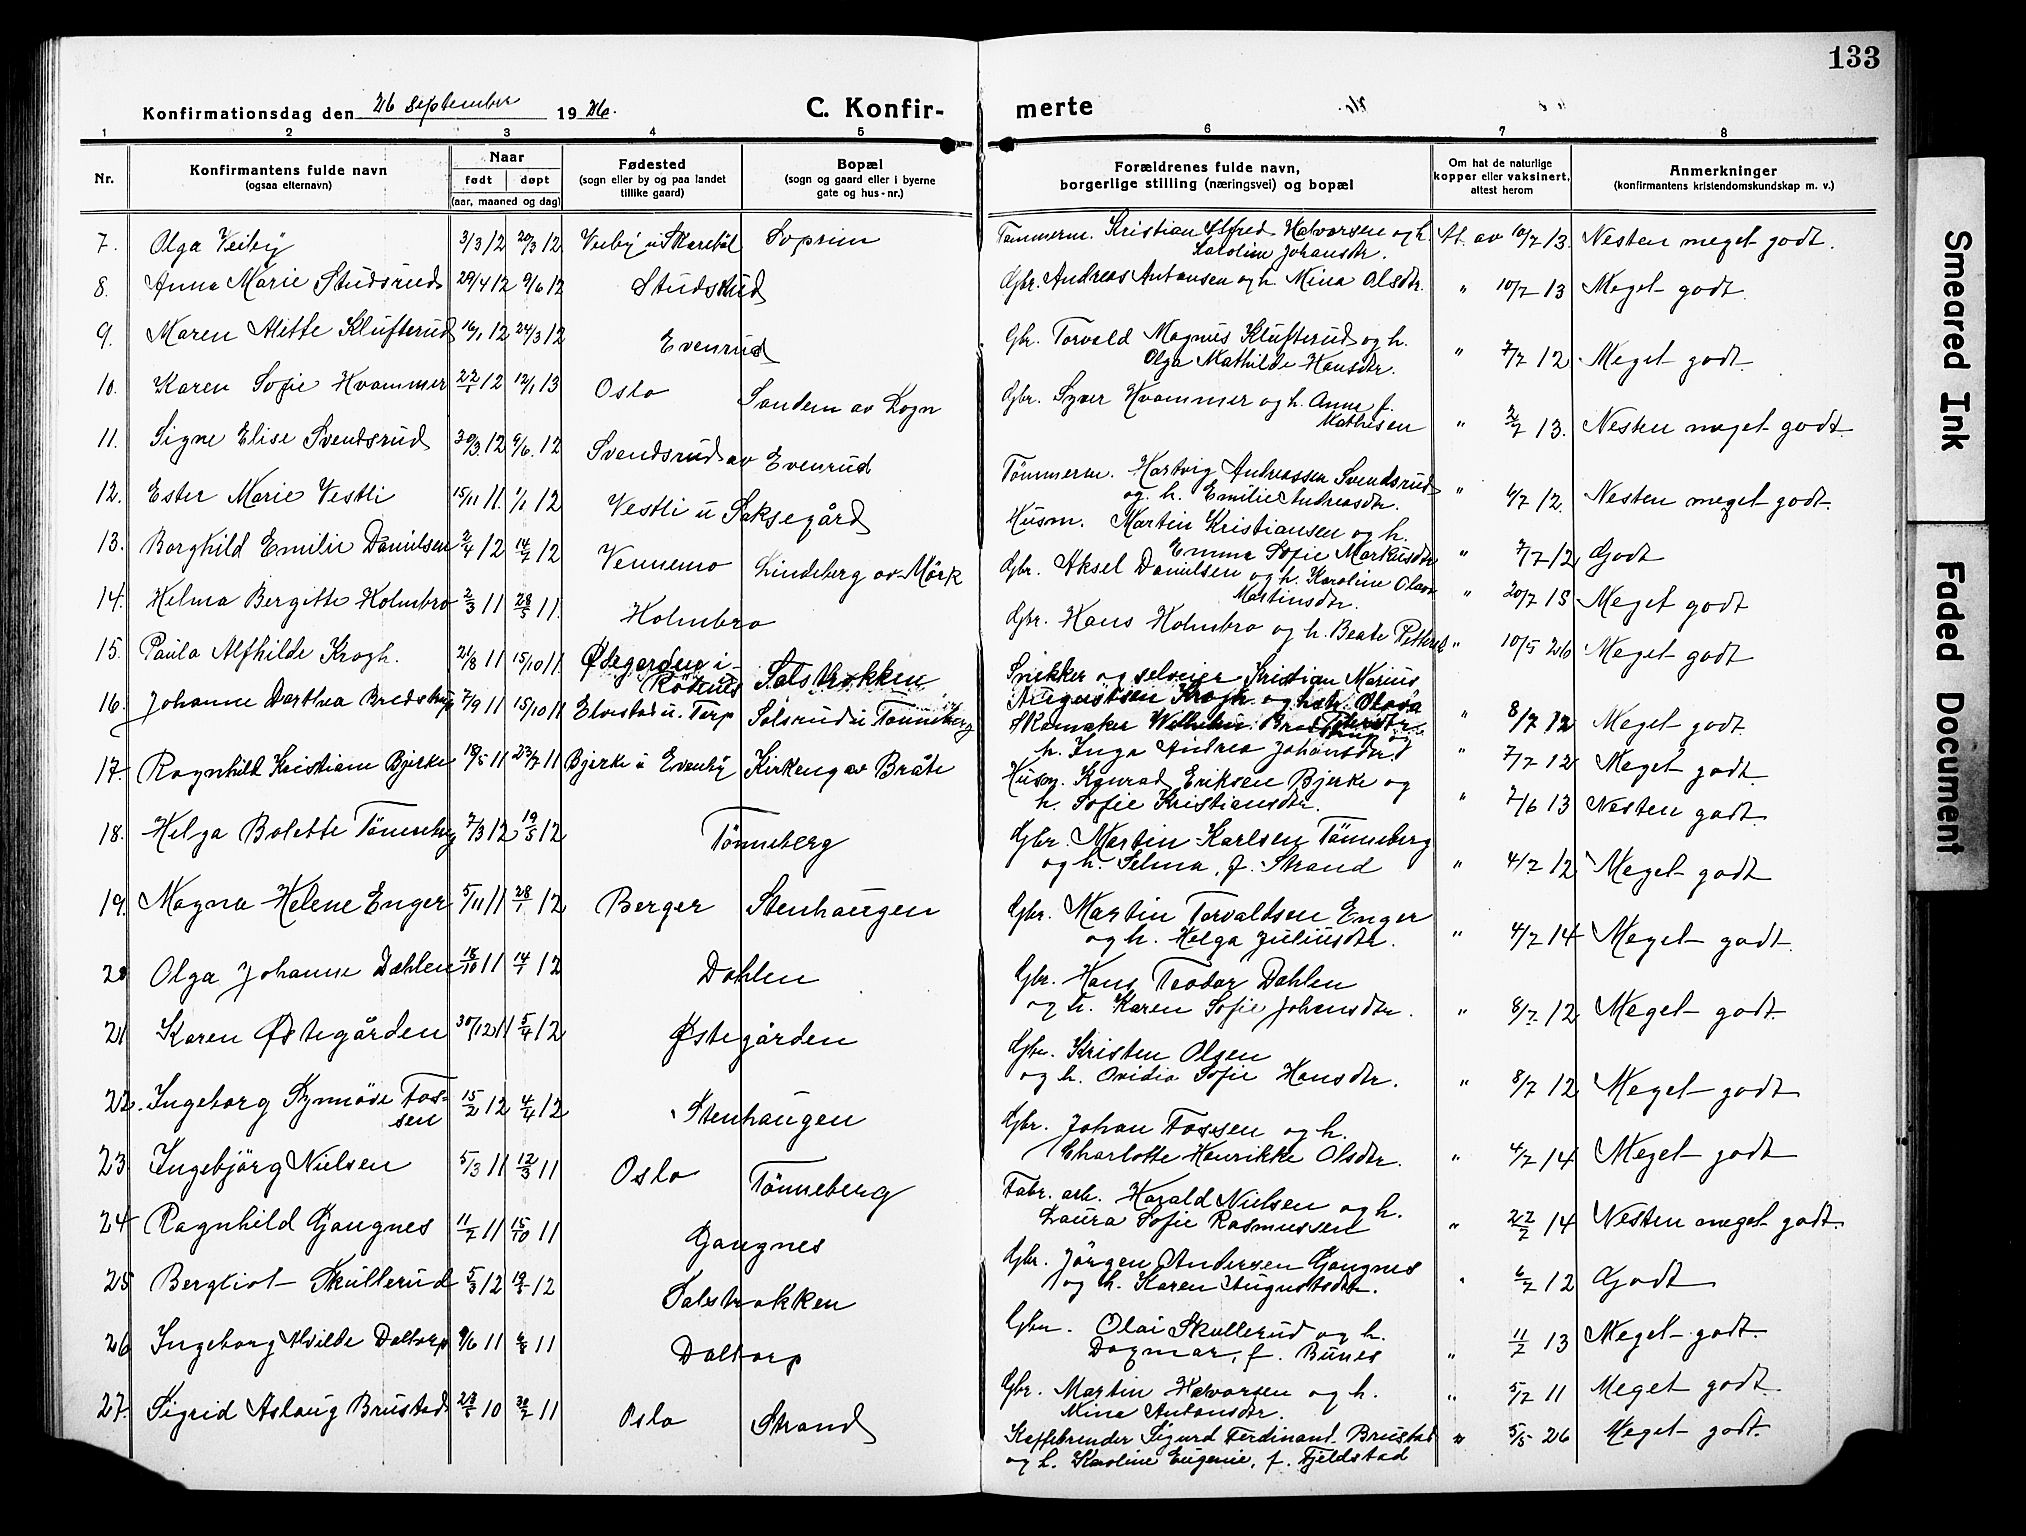 133
Konfirmationsdag den 26 september 1926.
C. Konfirmerte
1 2 3 4 5 6 7 8
Nr.
Konfirmantens fulde navn
(ogsaa efternavn)
Naar
født døpt
(aar, maaned og dag)
Fødested
(sogn eller by og paa landet
tillike gaard)
Bopæl
(sogn og gaard eller i byerne
gate og hus-nr.)
Forældrenes fulde navn,
borgerlige stilling (næringsvei) og bopæl
Om hat de naturlige
kopper eller vaksinert,
attest herom
Anmerkninger
(konfirmantens kristendomskundskap m. v.)
7. Olga Veiby 3/3 12 20/3 12 Veiby u Skarebøl Soprim Tømmerm. Kristian Alfred Halvorsen og h. At. av 10/7 13. Nesten meget godt.
Karoline Johansdtr.
8. Anna Marie Studsrud 29/4 12 9/6 12 Studsrud Gbr. Andreas Antonsen og h. Mina Olsdtr. " 10/7 13 Meget godt.
9. Maren Alette Klufterud 16/1 12 24/3 12 Evenrud Gbr. Torvald Magnus Klufterud og h. " 7/7 12 Meget godt.
Olga Mathilde Hansdtr.
10. Karen Sofie Hvammer 12/1 13 Oslo Sandem av Sogn Gbr. Syver Hvammer og h. Anna f. Mathisen " 13. Nesten meget godt.
11. Signe Elise Svendsrud 30/3 12 9/6 12 Svendsrud av Evenrud Tømmerm. Hartvig Andreassen Svendsrud " 6/7 12. Nesten meget godt.
og h. Emilie Andreasdtr.
12. Ester Marie Vestli 15/11 11. 7/1 12 Vestli u Saksegård Husm. Martin Kristiansen og h. " 7/7 12 Godt
Emma Sofie Markusdtr
13. Borghild Emilie Danielsen 2/4 12 14/7 12 Vennemo Lindeberg av Mörk Gbr. Aksel Danielsen og h. Karoline Olava " 20/7 15 Meget godt
Martinsdtr.
14. Helma Bergette Holmbro 2/3 11 28/5 11. Holmbro Gbr. Hans Holmbro og h. Beate Pettersd " 10/5 26 Meget godt
15. Paula Alfhilde Krogh. 21/8 11 15/10 11 Østgarden i Rötnes Salstrokken Snikker og selveier Kristian Marius
Augustsen Krogh og h. Olava " 8/7 12 Meget godt.
16. Johanne Dorthea Bredstrup 7/9 11 15/10 11 Elvestad u. Torp Solsrud u Tönneberg Skomaker Wilhelm Bredstrup og
h. Inga Andrea Johansdtr. " 7/7 12 Meget godt.
17. Ragnhild Kristiane Bjerke 18/5 11 23/7 11 Bjerke u Evenby Kirkeng av Bråte Husm. Konrad Eriksen Bjerke og
h. Sofie Kristiansdtr. " 7/6 13 Nesten godt.
18. Helga Bolette Tönneberg 7/3 12 19/5 12 Tönneberg Gbr. Martin Karlsen Tönneberg
og h. Selma, f. Strand " 4/7 12 Meget godt
19. Magna Helene Enger 5/11 11 28/1 12 Berger Stenhaugen Gbr. Martin Torvaldsen Enger
og h. Helga Juliusdtr. " 4/7 14 Meget godt.
20 Olga Johanne Dahlen 18/10 11 14/1 12 Dahlen Gbr. Hans Teodor Dahlen
og h. Karen Sofie Johansdtr. " 8/7 12 Meget godt.
21 Karen Østegården 30/12 11 5/4 12 Østegården Gbr. Kristen Olsen
og h. Ovidia Sofie Hansdtr. " 8/7 12 Meget godt
22. Ingeborg Synnöve Fossen 15/2 12 4/4 12 Stenhaugen Gbr. Johan Fossen og h.
Charlotte Henrikke Olsdtr. " 4/7 14 Meget godt
23. Ingebjörg Nielsen 5/3 11 12/3 11 Oslo Tönneberg Fabr. arb. Harald Nielsen og h.
Laura Sofie Rasmussen " 22/2 14 Nesten meget godt.
24 Ragnhild Gaugnes 11/7 11 15/10 11 Gaugnes Gbr. Jörgen Andersen Gaugnes
og h. Karen Augustsdtr. " 6/7 12 Godt
25 Bergliot Skullerud 5/3 12 12 Salstrokken Gbr. Olai Skullerud og h.
Dagmar, f. Bunes " 11/7 13 Meget godt.
26 Ingeborg Alvilde Daltorp 9/6 11 11 Daltorp Gbr. Martin Halvorsen og h.
Mina Antonsdtr. " 5/7 11 Meget godt.
27. Sigrid Aslaug Brustad 10 11 Oslo Strand Kaffebrender Sigurd Ferdinand Brustad
og h. Karoline Eugenie, f. Fjeldstad " 5/5 26 Meget godt.
Smeared Ink
Faded Document